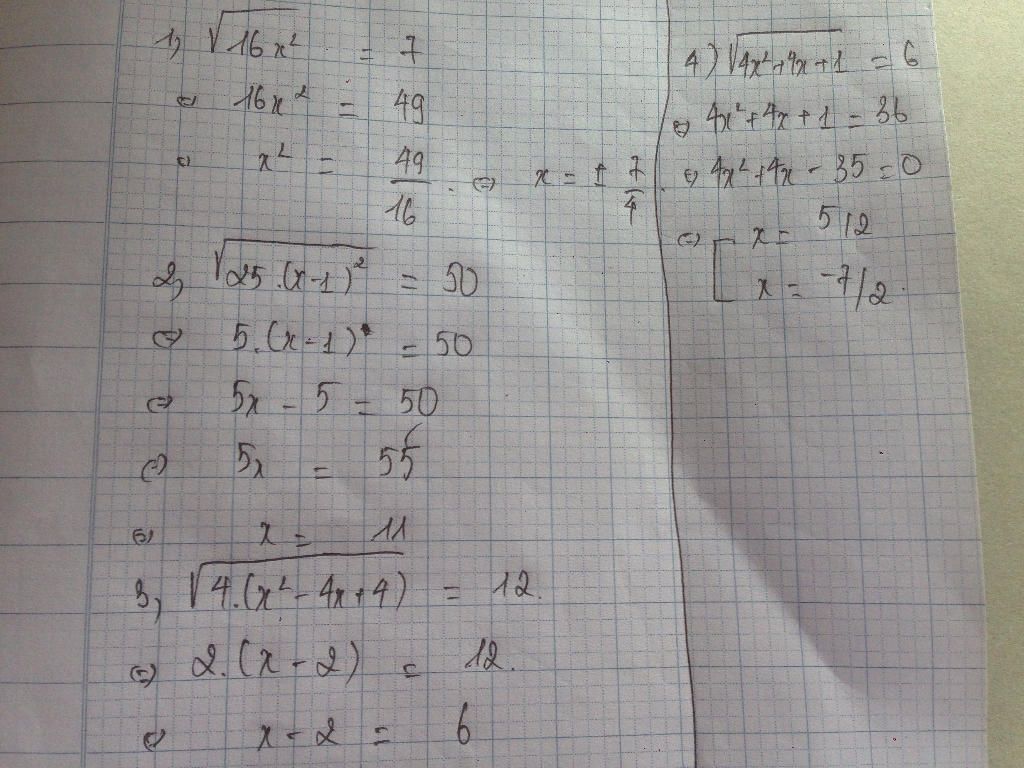 1, √16x² = 7
⇔ 16x² = 49
⇔ x² = 49/16 . ⇔ x = ± 7/4 .
2, √25.(x-1)² = 50
⇔ 5.(x-1) = 50
⇔ 5x - 5 = 50
⇔ 5x = 55
⇔ x = 11
3, √4.(x²-4x+4) = 12.
⇔ 2.(x-2) = 12.
⇔ x-2 = 6
4) √4x²+4x+1 = 6
⇔ 4x²+4x+1 = 36
⇔ 4x²+4x-35=0
⇔ [ x = 5/2
x = -7/2.